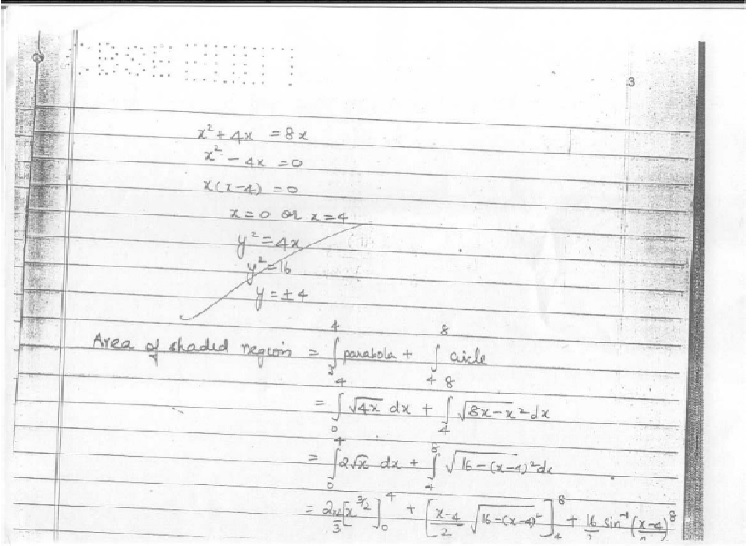 3
x² + 4x = 8x
x² - 4x = 0
x(x-4) = 0
x = 0 or x = 4
y² = 4x
y² = 16
y = ± 4
Area of shaded region = ∫₀⁴ parabola + ∫₄⁸ circle
= ∫₀⁴ √4x dx + ∫₄⁸ √8x-x² dx
= ∫₀⁴ 2√x dx + ∫₄⁸ √16-(x-4)² dx
= 2×2/3 [x^3/2]₀⁴ + [x-4/2 √16-(x-4)²]₄⁸ + 16/2 sin⁻¹(x-4)⁸